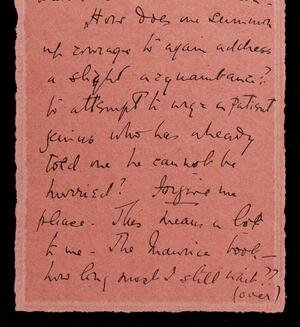 How does one summon
up courage to again address
a slight acquaintance?
to attempt to urge a patient
genius who has already
told one he cannot be
hurried? forgive me
please. This means a lot
to me - The Maurice book -
how long must I still wait??
(over)